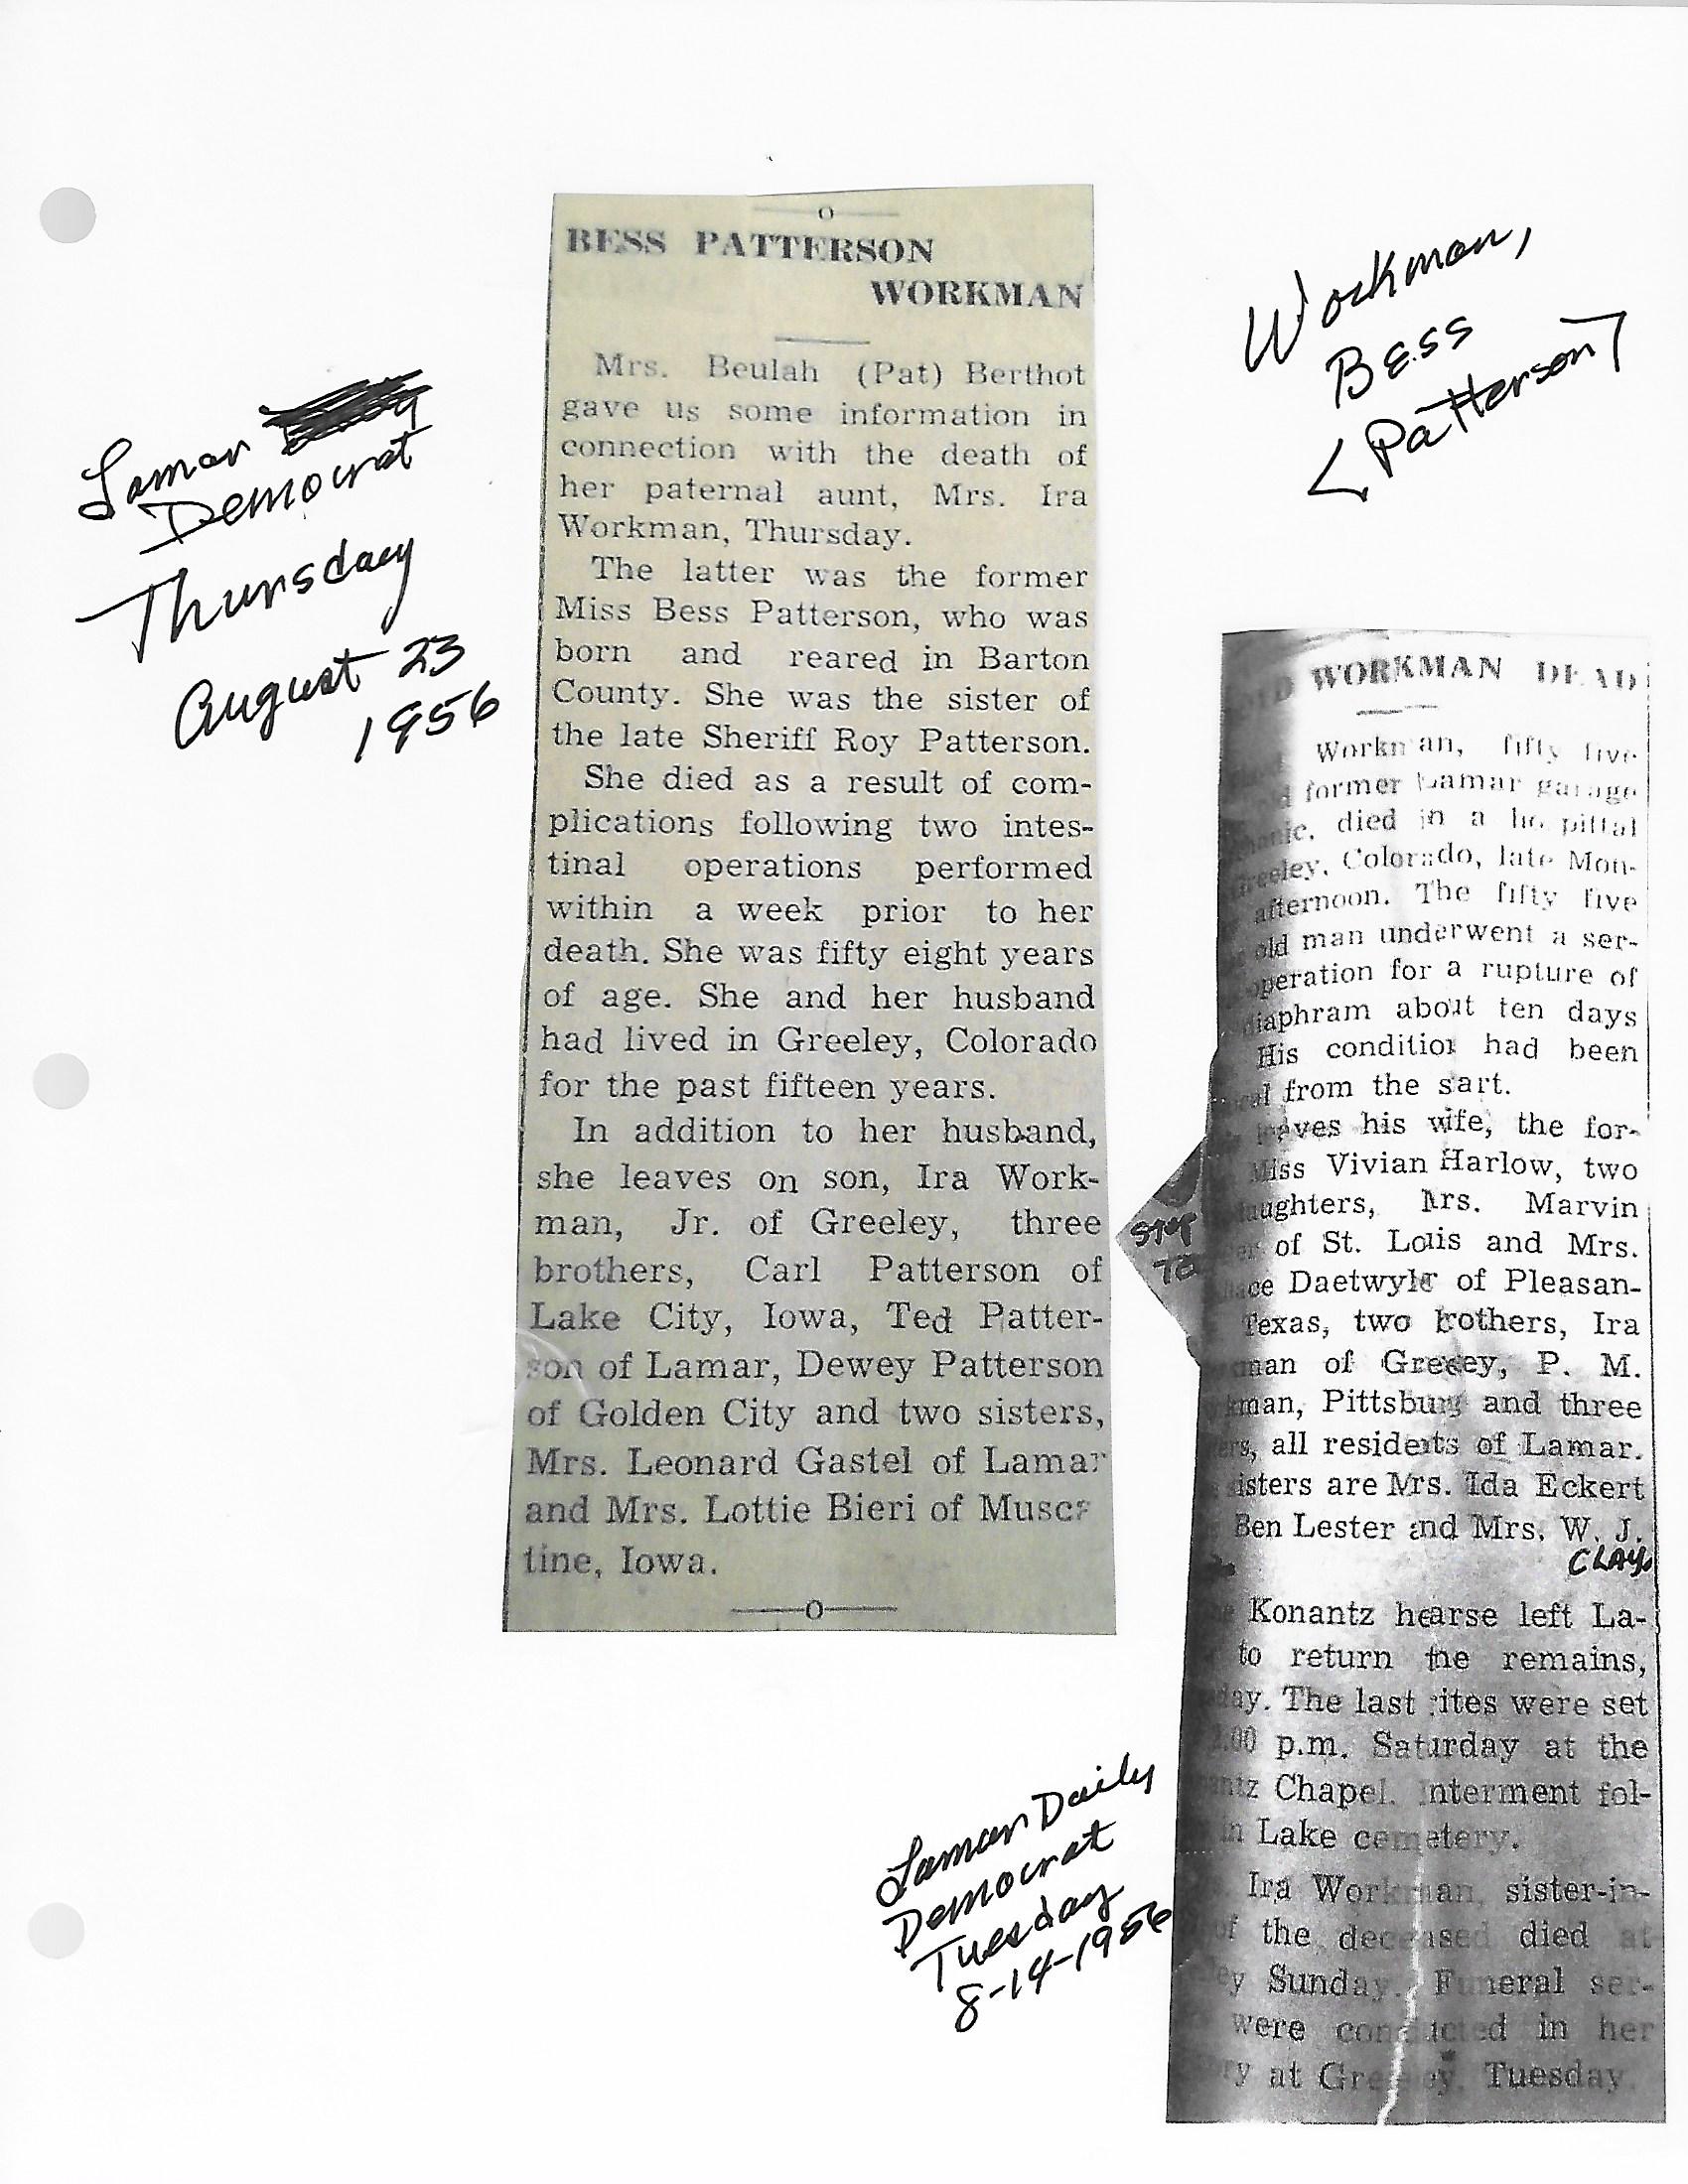 Lamar
Democrat
Thursday
August 23
1956
Workman,
Bess
<Patterson>
—o—
BESS PATTERSON
WORKMAN
Mrs. Beulah (Pat) Berthot
gave us some information in
connection with the death of
her paternal aunt, Mrs. Ira
Workman, Thursday.
The latter was the former
Miss Bess Patterson, who was
born and reared in Barton
County. She was the sister of
the late Sheriff Roy Patterson.
She died as a result of com-
plications following two intes-
tinal operations performed
within a week prior to her
death. She was fifty eight years
of age. She and her husband
had lived in Greeley, Colorado
for the past fifteen years.
In addition to her husband,
she leaves on son, Ira Work-
man, Jr. of Greeley, three
brothers, Carl Patterson of
Lake City, Iowa, Ted Patter-
son of Lamar, Dewey Patterson
of Golden City and two sisters,
Mrs. Leonard Gastel of Lamar
and Mrs. Lottie Bieri of Musca
tine, Iowa.
—o—
WORKMAN DEAD
Workman, fifty five
former Lamar garage
died in a hospittal
Colorado, late Mon-
afternoon. The fifty five
old man underwent a ser-
operation for a rupture of
diaphram about ten days
His condition had been
from the sart.
leaves his wife, the for-
Miss Vivian Harlow, two
daughters, Mrs. Marvin
of St. Louis and Mrs.
Daetwyler of Pleasan-
Texas, two brothers, Ira
man of Greeley, P. M.
kman, Pittsburg and three
ers, all residents of Lamar.
sisters are Mrs. Ida Eckert
Ben Lester and Mrs. W. J.
CLAY.
Konantz hearse left La-
to return the remains,
day. The last rites were set
p.m. Saturday at the
Chapel. Interment fol-
in Lake cemetery.
Ira Workman, sister-in-
of the deceased died at
ey Sunday. Funeral ser-
were conducted in her
ry at Greeley, Tuesday.
Lamar Daily
Democrat
Tuesday
8-14-1956